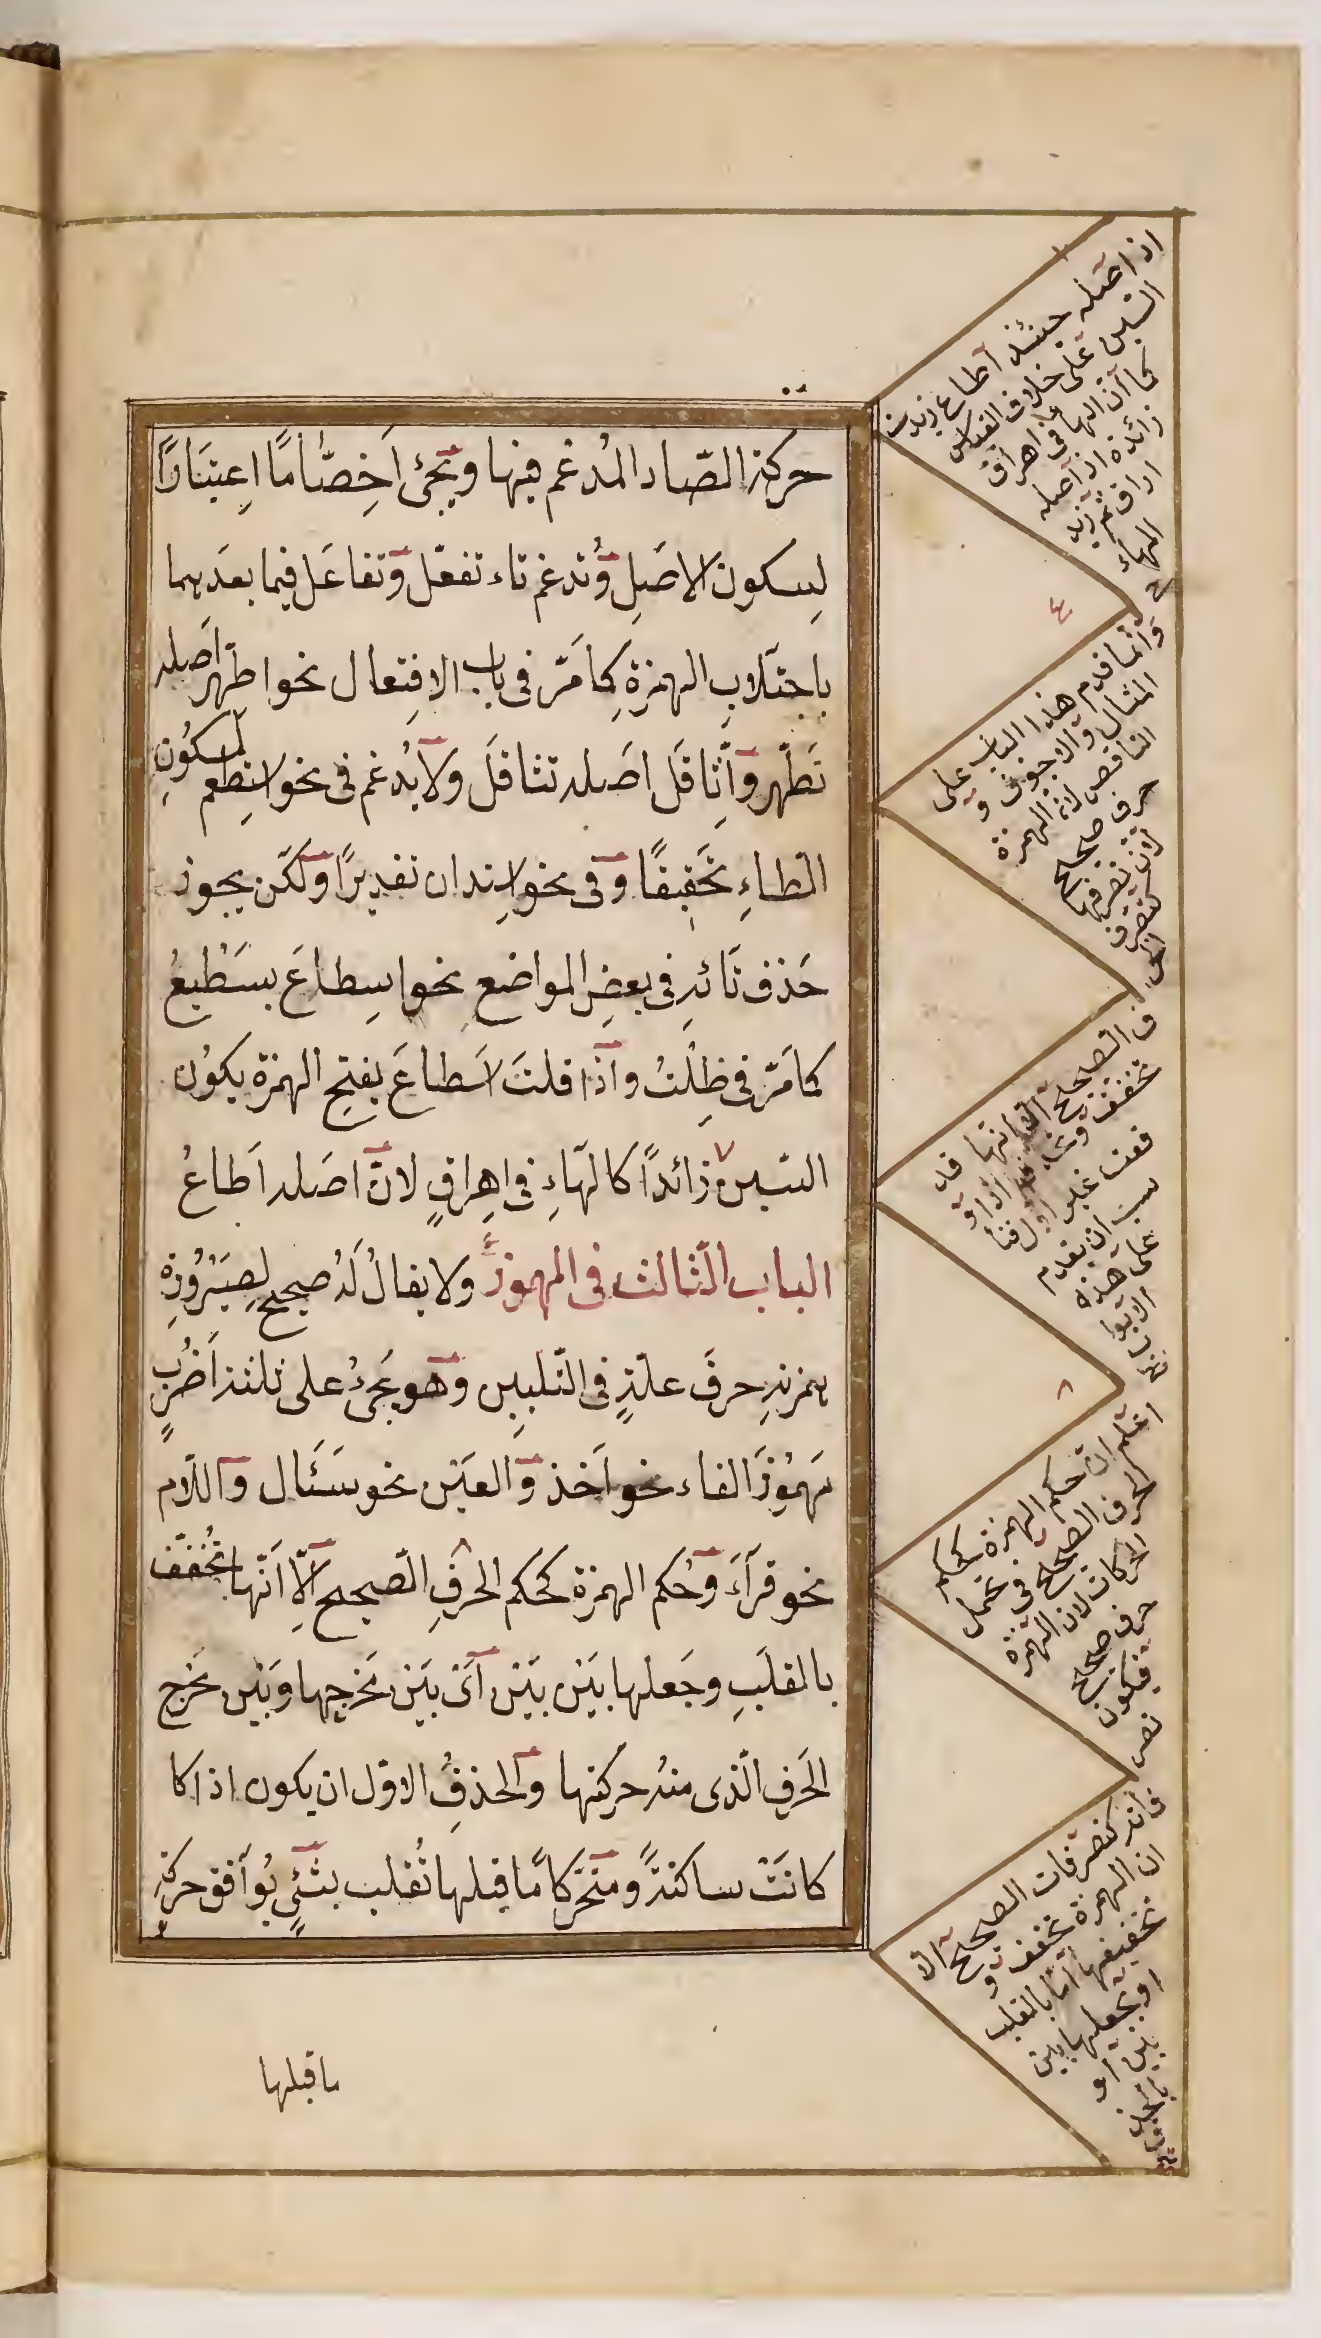 حركة الصّاد المُدغم فيها ويجئ اَخِصّامًا اِعتبَارًا
لِسكون الاصَلِ وتُدغم تاء تفعّل وتفاعَل فيما بعدَهما
باجتلابِ الهمزة كما مَرّ فى باب الافتِعال نحو اطّهر اصَله
تَطّهر واثّاقَل اصَله تثاقَل ولا يُدغم فى نحو استِطعم لِسكُونِ
الطاءِ تحَقِيقًا وفى نحو اِستدان تقديرًا ولكن يجوز
حَذف تَائه فى بعضِ المواضع نحو اسِطاعَ يسَطيعُ
كما مَرّ فى ظِلْتُ واذا قلتَ اَسطاعَ بفتحِ الهمزة يكوُن
السّين زائدًا كالهَاءِ فى اِهراقٍ لانّ اصَله اَطاعُ
الباب الثّالث فى المهموز ولا يقالُ لَهُ صحيح لِصَيرُورَةِ
همزتهِ حرفَ علّةٍ فى التّليينِ وهو يجَئُ على ثلثة اَضرُبٍ
مَهمُوزَ الفاء نحو اَخذ والعَيْن نحو سَئَال واللّام
نحو قرآءَ وحُكم الهمزة كحُكم الحَرفِ الصّحيح اِلّا اَنّها تُخفّف
بالقلَبِ وجَعلها بَيْن بَيْن اَىْ بَيْن مَخرجِها وبَيْن مَخرج
الحَرفِ الّذى منهُ حركتها والحذفُ الاوّل ان يكون اذا كا
كانَتْ ساكنَةً ومتَحَرّكا مّا قبلها تُقلب بشَئٍ يُوافق حركةِ
ما قبلها
اذ اصله حينئذ اطاع زيدت
السّين على خلاف القياس
كما ان الهاء فى اهراق
زائدة اذ اصله
اراق ثم زيد
الهاء
٤
وانّما قدم هذا الباب على
المثال والاجوف و
الناقص لان الهمزة
حرف صحيح
لان تصرفها
كتصرف
ف الصحيح الّا انها قد
تخفف
سب ان يقدم
على هذه
الابوا
ب
٨
اعلم ان حكم الهمزة كحكم
الحرف الصحيح فى تحمل
الحركات لان الهمزة
حرف صحيح
فيكون
تصر
فاته كتصرفات الصحيح الّا
ان الهمزة تخفف و
تخفيفها امّا بالقلب
او بجعلها بين
بين او
بالحذف